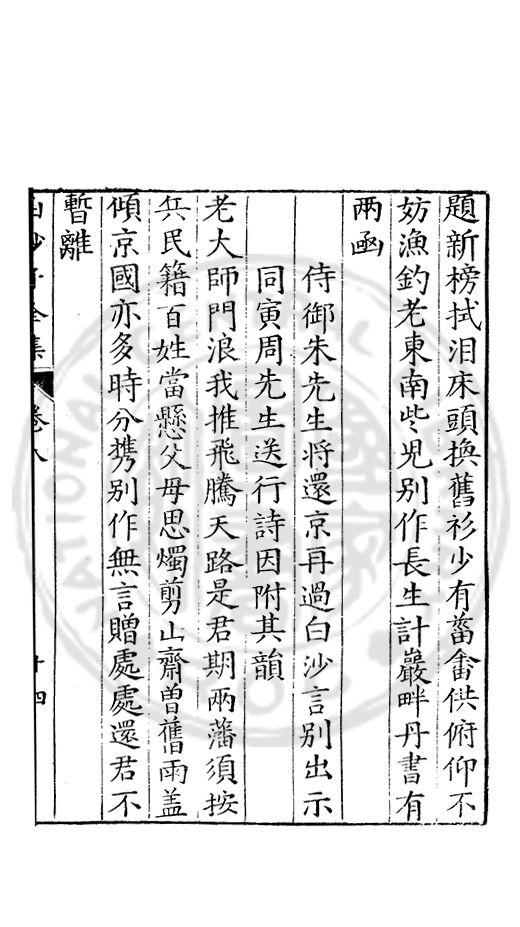 題新榜拭泪床頭換舊衫少有菑畬供俯仰不
妨漁釣老東南些兒别作長生計巖畔丹書有
兩函
侍御朱先生将還京再過白沙言别出示
同寅周先生送行詩因附其韻
老大師門浪我推飛騰天路是君期兩藩須按
兵民籍百姓當懸父母思燭剪山齋曽舊雨盖
傾京國亦多時分携别作無言贈處處還君不
暫離
白沙子全集
卷八
十四